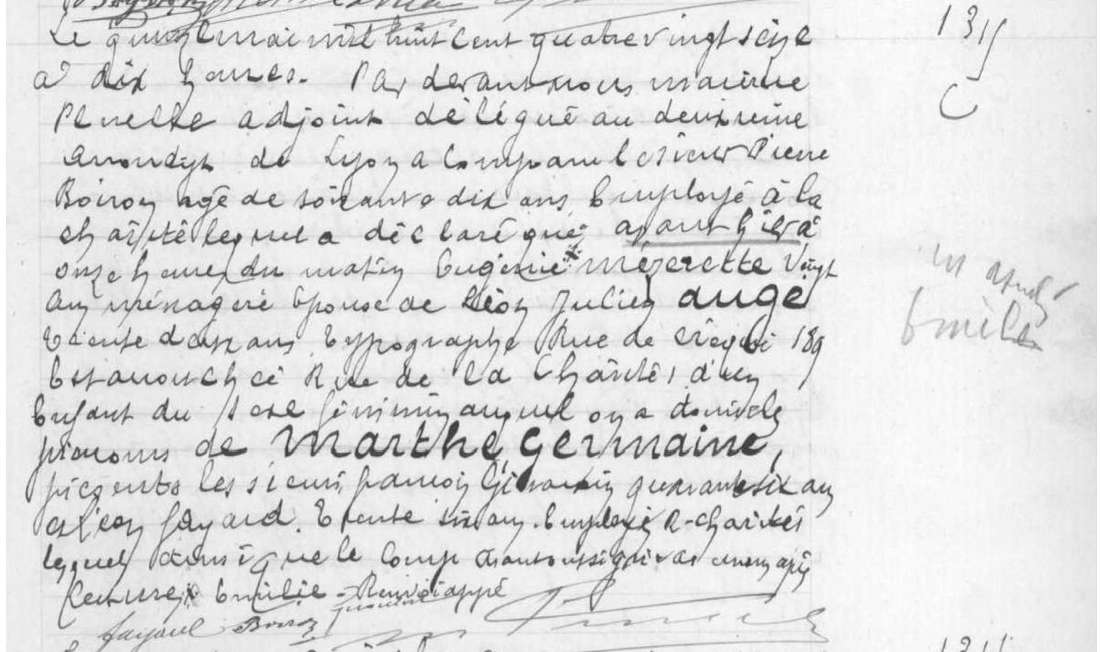 Le quinze mai mil huit cent quatre vingt seize
à dix heures. Par devant nous maire
adjoint délégué au deuxième
arrondist de Lyon a comparu le sieur Pierre
Boiron agé de soixante dix ans Employé à la
charité lequel a déclaré que avant hier à
onze heures du matin Eugénie * mézerette vingt
ans ménagère épouse de Léon Julien augé
trente deux ans typographe Rue de Créqui 189
Est accouchée Rue de la Charité, d'un
Enfant du sexe féminin auquel on a donné les
prénoms de Marthe Germaine,
présents les sieurs quarante six ans
et Léon fayard trente six ans Employés R. charité
lesquels ainsi que le comp ont signé avec nous après
lecture * Emilie - Renvoi app
fayard Boiron
131
C
Emilie